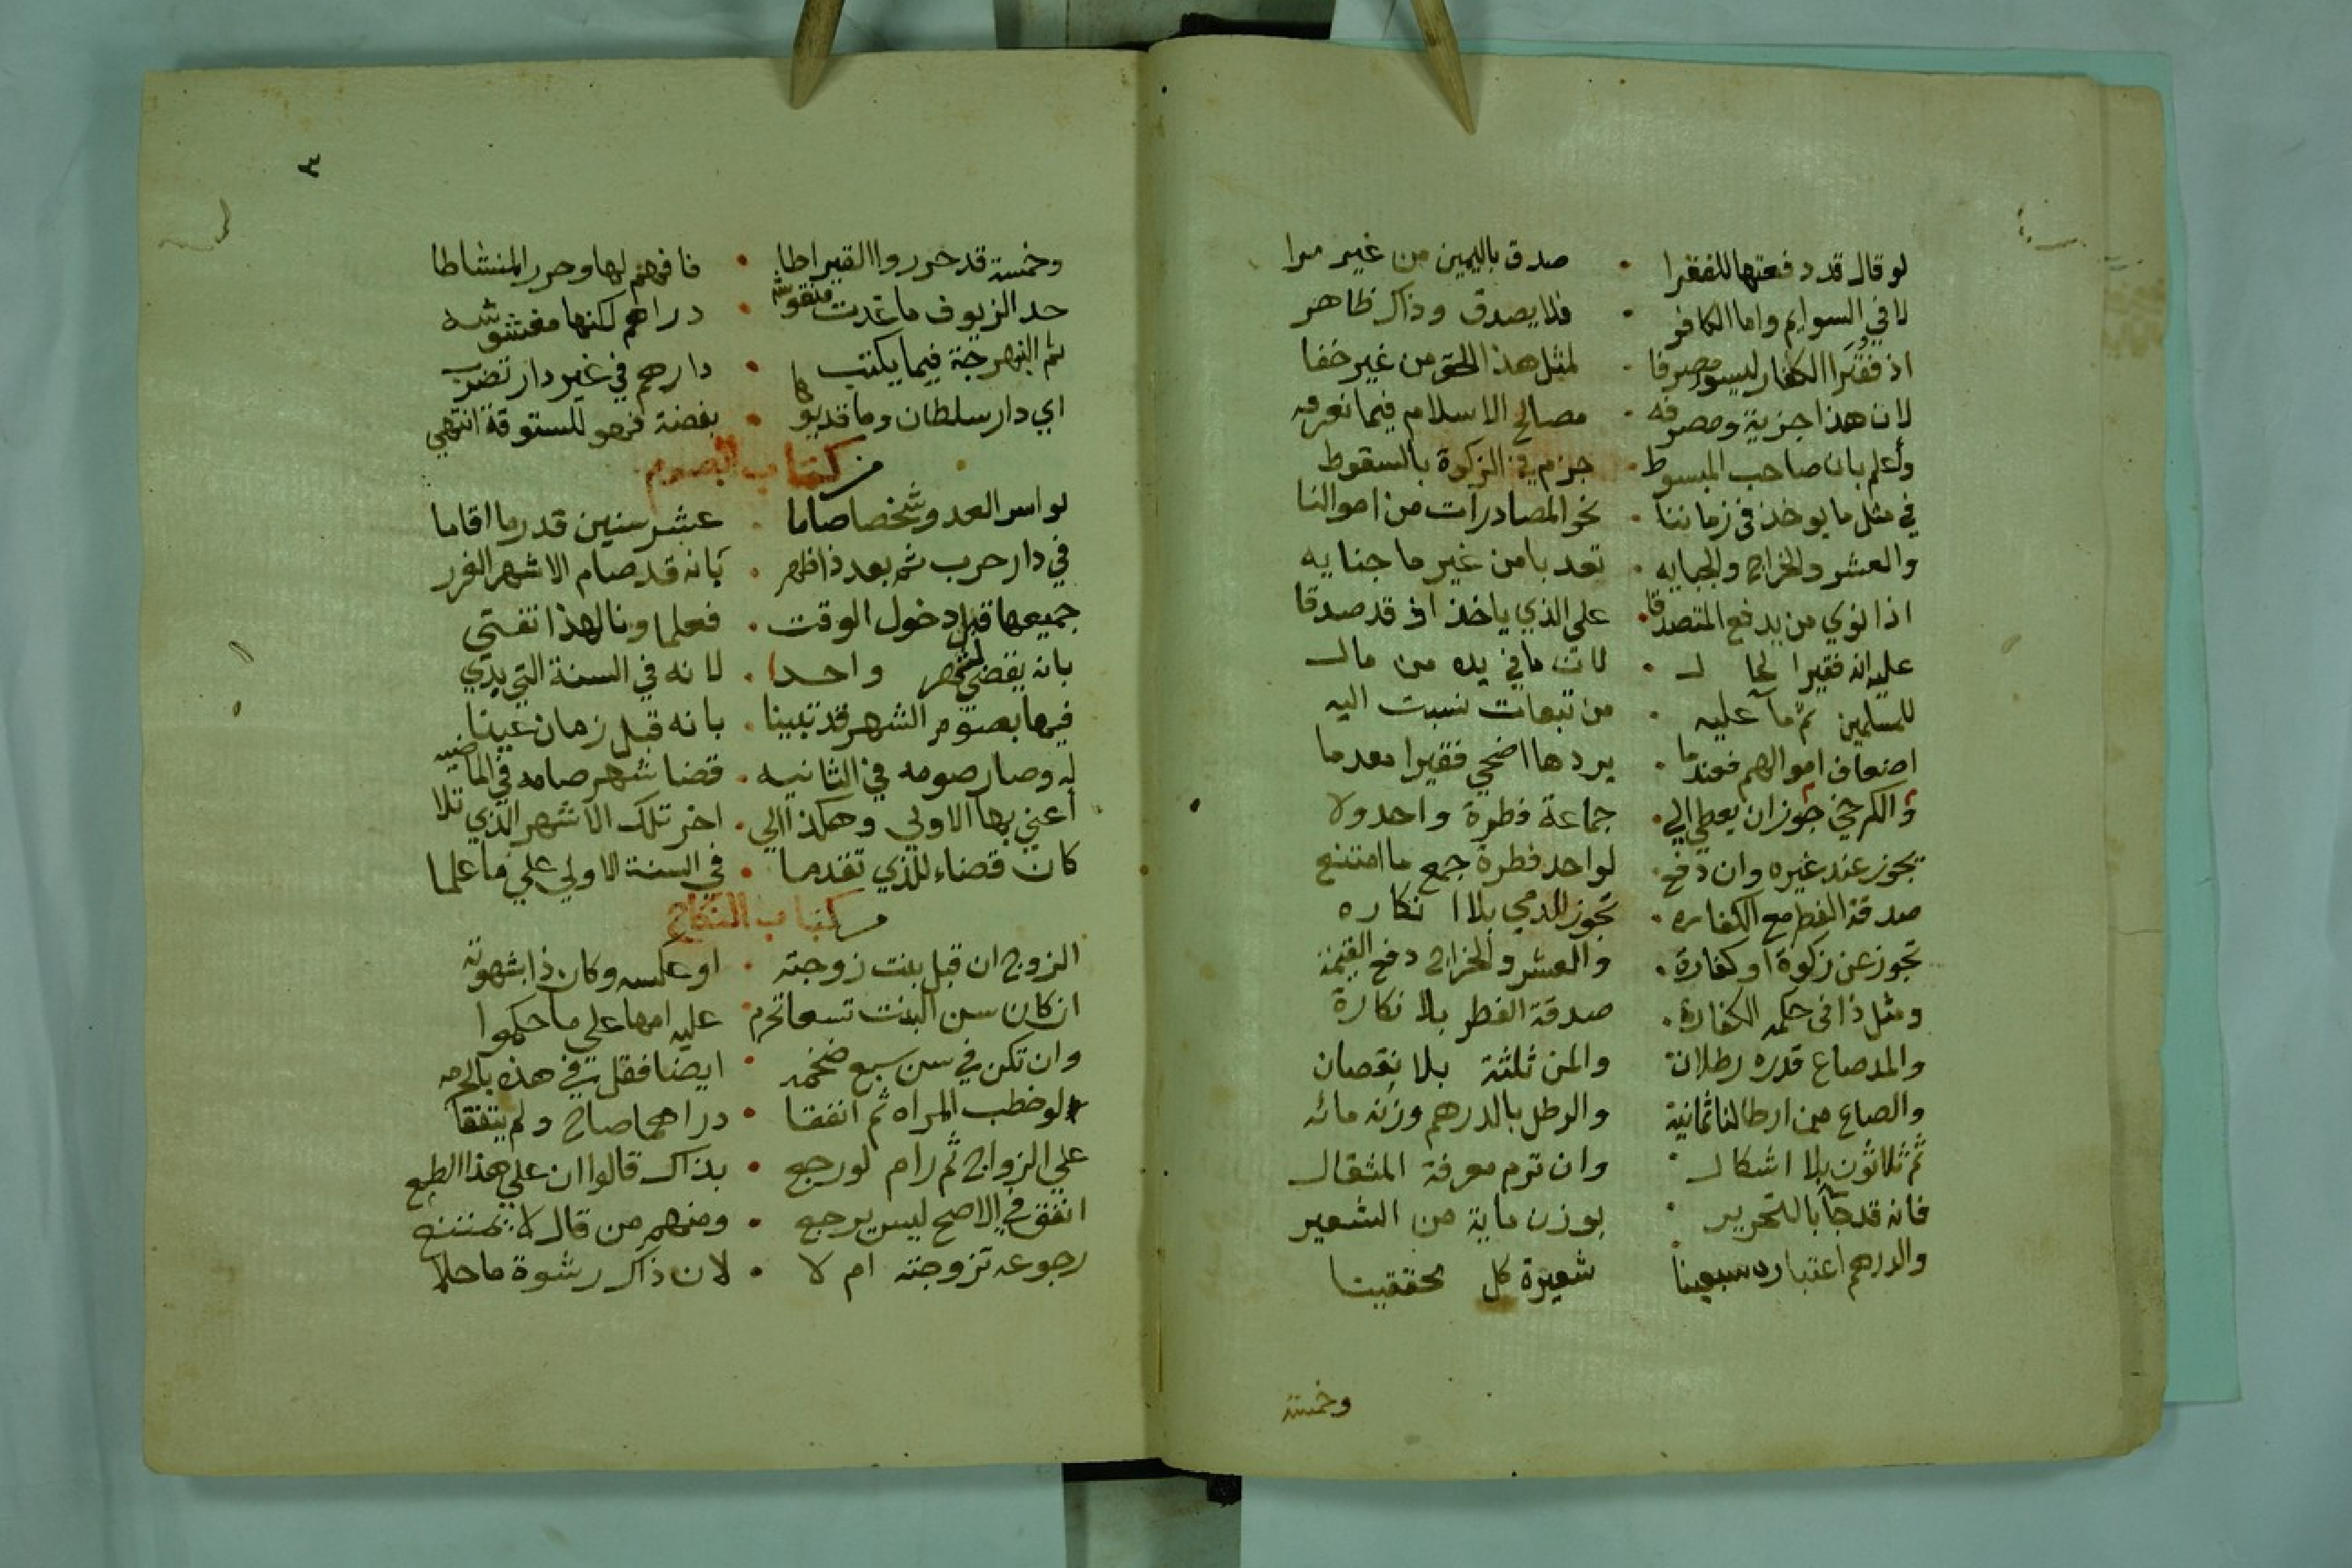 لو قال قد دفعتها للفقرا • صدق باليمين من غير مرا
لا في السوايم واما الكافر • فلا يصدق وذاك ظاهر
اذ فقرا الكفار ليسو مصرفا • لمثل هذا الحق من غير خفا
لان هذا جزية ومصرفه • مصالح الاسلام فيما نعرفه
وأعلم بان صاحب المبسوط • جزم في الزكوة بالسقوط
في مثل ما يوخذ في زماننا • نحو المصادرات من اموالنا
والعشر والخراج والجبايه • تعد يا من غير ما جنايه
اذا نوي من يدفع المتصدقا • على الذي ياخذ اذ قد صدقا
عليه انه فقيرا لحا لـ • لان ما في يده من مال
للمسلمين ثم ما عليه • من تبعات نسبت اليه
اضعاف اموالهم فعندما • يردها اضحي فقيرا معدما
والكرخي جوزان يعطي الي • جماعة فطرة واحد ولا
يجوز عند غيره وان دفع • لواحد فطرة جمع ما امتنع
صدقة الفطر مع الكفاره • تجوز للدمي بلا ا نكاره
تجوز عن زكوة او كفارة • والعشر والخراج دفع القيمة
ومثل ذا في حكمه الكفارة • صدقة الفطر بلا نكارة
والمد صاع قدره رطلان والمن ثلثة بلا نقصان
والصاع من ارطالنا ثمانية والرطل بالدرهم وزنه مائه
ثم ثلاثون بلا اشكال • وان ترم معرفة المثقال
فانه قد جآ بالتحرير • بوزن ماية من الشعير
والدرهم اعتباره سبعينا شعيرة كل تحققينا
وخمسة
٣
وخمسة قد حرروا القيراطا • فافهم لها وحرر المنشاطا
حد الزيوف ما غدت منقوشه • دراهم لكنها مغشوشه
ثم النبهرجة فيما يكتب • دارهم في غير دار تضرب
اي دار سلطان وما قد يو • بفضة فهو للستوقة انتهي
كتاب الصوم
لو اسر العدو شخصا صاما • عشر سنين قدر ما اقاما
في دار حرب ثم بعد ذا ظهر • بانه قد صام الاشهر الغرر
جميعها قبل دخول الوقت • فعلما ونا لهذا تفتي
بانه يقضي لشهر واحدا • لانه في السنة التي بدي
فيها بصوم الشهر قد تبينا • بانه قبل زمان عينا
له وصار صومه في الثانيه • قضا شهر صامه في الماضيه
أعني بها الاولي وهكذا الي • اخر تلك الاشهر الذي تلا
كان قضاء للذي تقدما • في السنة الاولي علي ما علما
كتاب النكاح
الزوج ان قبل بنت زوجته • او عكسه وكان ذا بشهوته
ان كان سن البنت تسعا تحرم • عليه امها علي ما حكموا
وان تكن في سن سبع ضخمه • ايضا فقل في هذه بالحرمه
لو خطب المراه ثم انفقا • دراهما صاح ولم يتفقا
علي الزواج ثم رام لو رجع • بذاك قالوا ان علي هذا الطمع
انفق في الاصح ليس يرجع • ومنهم من قال لا يمتنع
رجوعه تزوجته ام لا • لان ذاك رشوة ما حلا